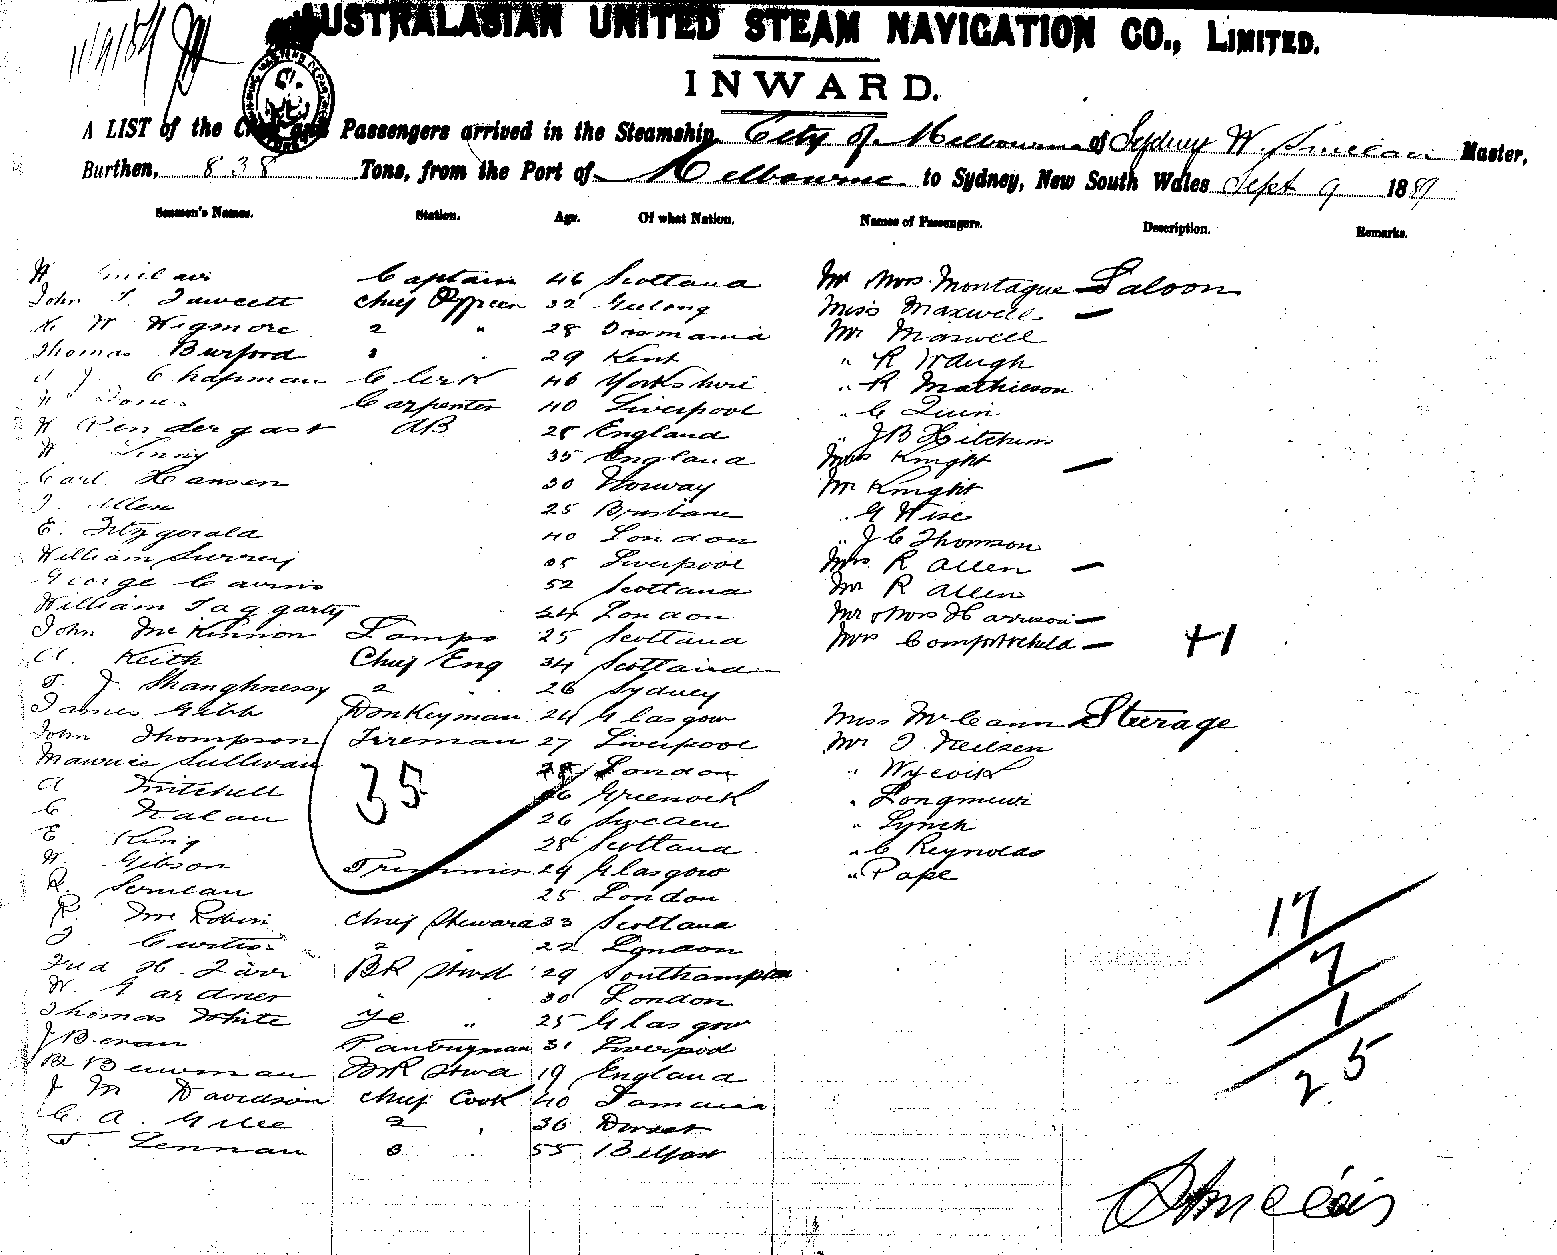 11/9/89
AUSTRALASIAN UNITED STEAM NAVIGATION CO., LIMITED.
INWARD.
A LIST of the Crew and Passengers arrived in the Steamship City of Melbourne of Sydney W. Sinclair Master,
Burthen, 838 Tons, from the Port of Melbourne to Sydney, New South Wales Sept 9 1889
Seamen's Names. Station. Age. Of what Nation. Names of Passengers. Description. Remarks.
W Sinclair Captain 46 Scotland Mr Mrs Montague Saloon
John T. Fawcett Chief Officer 32 Geelong Miss Maxwell —
W Wigmore 2 " 28 Tasmania Mr Maxwell
Thomas Burford 3 29 Kent " R Waugh
J Chapman Clerk 46 Yorkshire " R Mathieson
Jones Carpenter 40 Liverpool " C Quin
W Pendergast AB 28 England " J B Hitchins
W 35 England Miss Knight —
Carl Hansen 30 Norway Mr Knight
Allen 25 Brisbane " G Wise
E. Fitzgerald 40 London " J C Thomson
William Surrey 35 Liverpool Mrs R Allen —
George Cairns 52 Scotland Mr R Allen
William Taggarty 24 London Mr & Mrs Harrison —
John McKinnon Lamps 25 Scotland Mrs Comp & child — +1
A. Keith Chief Eng 34 Scotland
T. J. Shanghnessy 2 " 26 Sydney
James Gibb Donkeyman 24 Glasgow Miss McCann Steerage
John Thompson Fireman 27 Liverpool Mr J Neilsen
Maurice Sullivan 28 London " Wycoik
A Mitchell 35 26 Greenock " Longmuir
C Nalan 26 Sweden " Lynch
E King 28 Scotland " C Reynolds
W. Gibson Trimmer 29 Glasgow " Pape
R 25 London
R. McRobin Chief Steward 33 Scotland 17
J. Curtis 2 " 22 London
Fred H. Farr BR Stwd 29 Southampton 7
W Gardner " 30 London
Thomas White " 25 Glasgow 1
J Beran Pantryman 31 Liverpool
Bowman BR Stwd 19 England 25
J M Davidson Chief Cook 40 Jamaica
C. A. 2 " 36 Dorset
T. Lennan 3 " 55 Belfast
W Sinclair